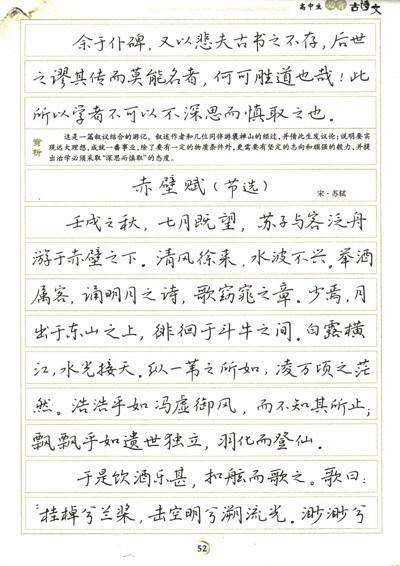 高中生必背古诗文
余于仆碑，又以悲夫古书之不存，后世
之谬其传而莫能名者，何可胜道也哉！此
所以学者不可以不深思而慎取之也。
赏析
这是一篇叙议结合的游记。叙述作者和几位同伴游褒禅山的经过，并借此生发议论；说明要实
现远大理想，成就一番事业，除了要有一定的物质条件外，更需要有坚定的志向和顽强的毅力，并提
出治学必须采取“深思而慎取”的态度。
赤壁赋（节选）
宋·苏轼
壬戌之秋，七月既望，苏子与客泛舟
游于赤壁之下。清风徐来，水波不兴。举酒
属客，诵明月之诗，歌窈窕之章。少焉，月
出于东山之上，徘徊于斗牛之间。白露横
江，水光接天。纵一苇之所如，凌万顷之茫
然。浩浩乎如冯虚御风，而不知其所止；
飘飘乎如遗世独立，羽化而登仙。
于是饮酒乐甚，扣舷而歌之。歌曰：
“桂棹兮兰桨，击空明兮溯流光。渺渺兮
52